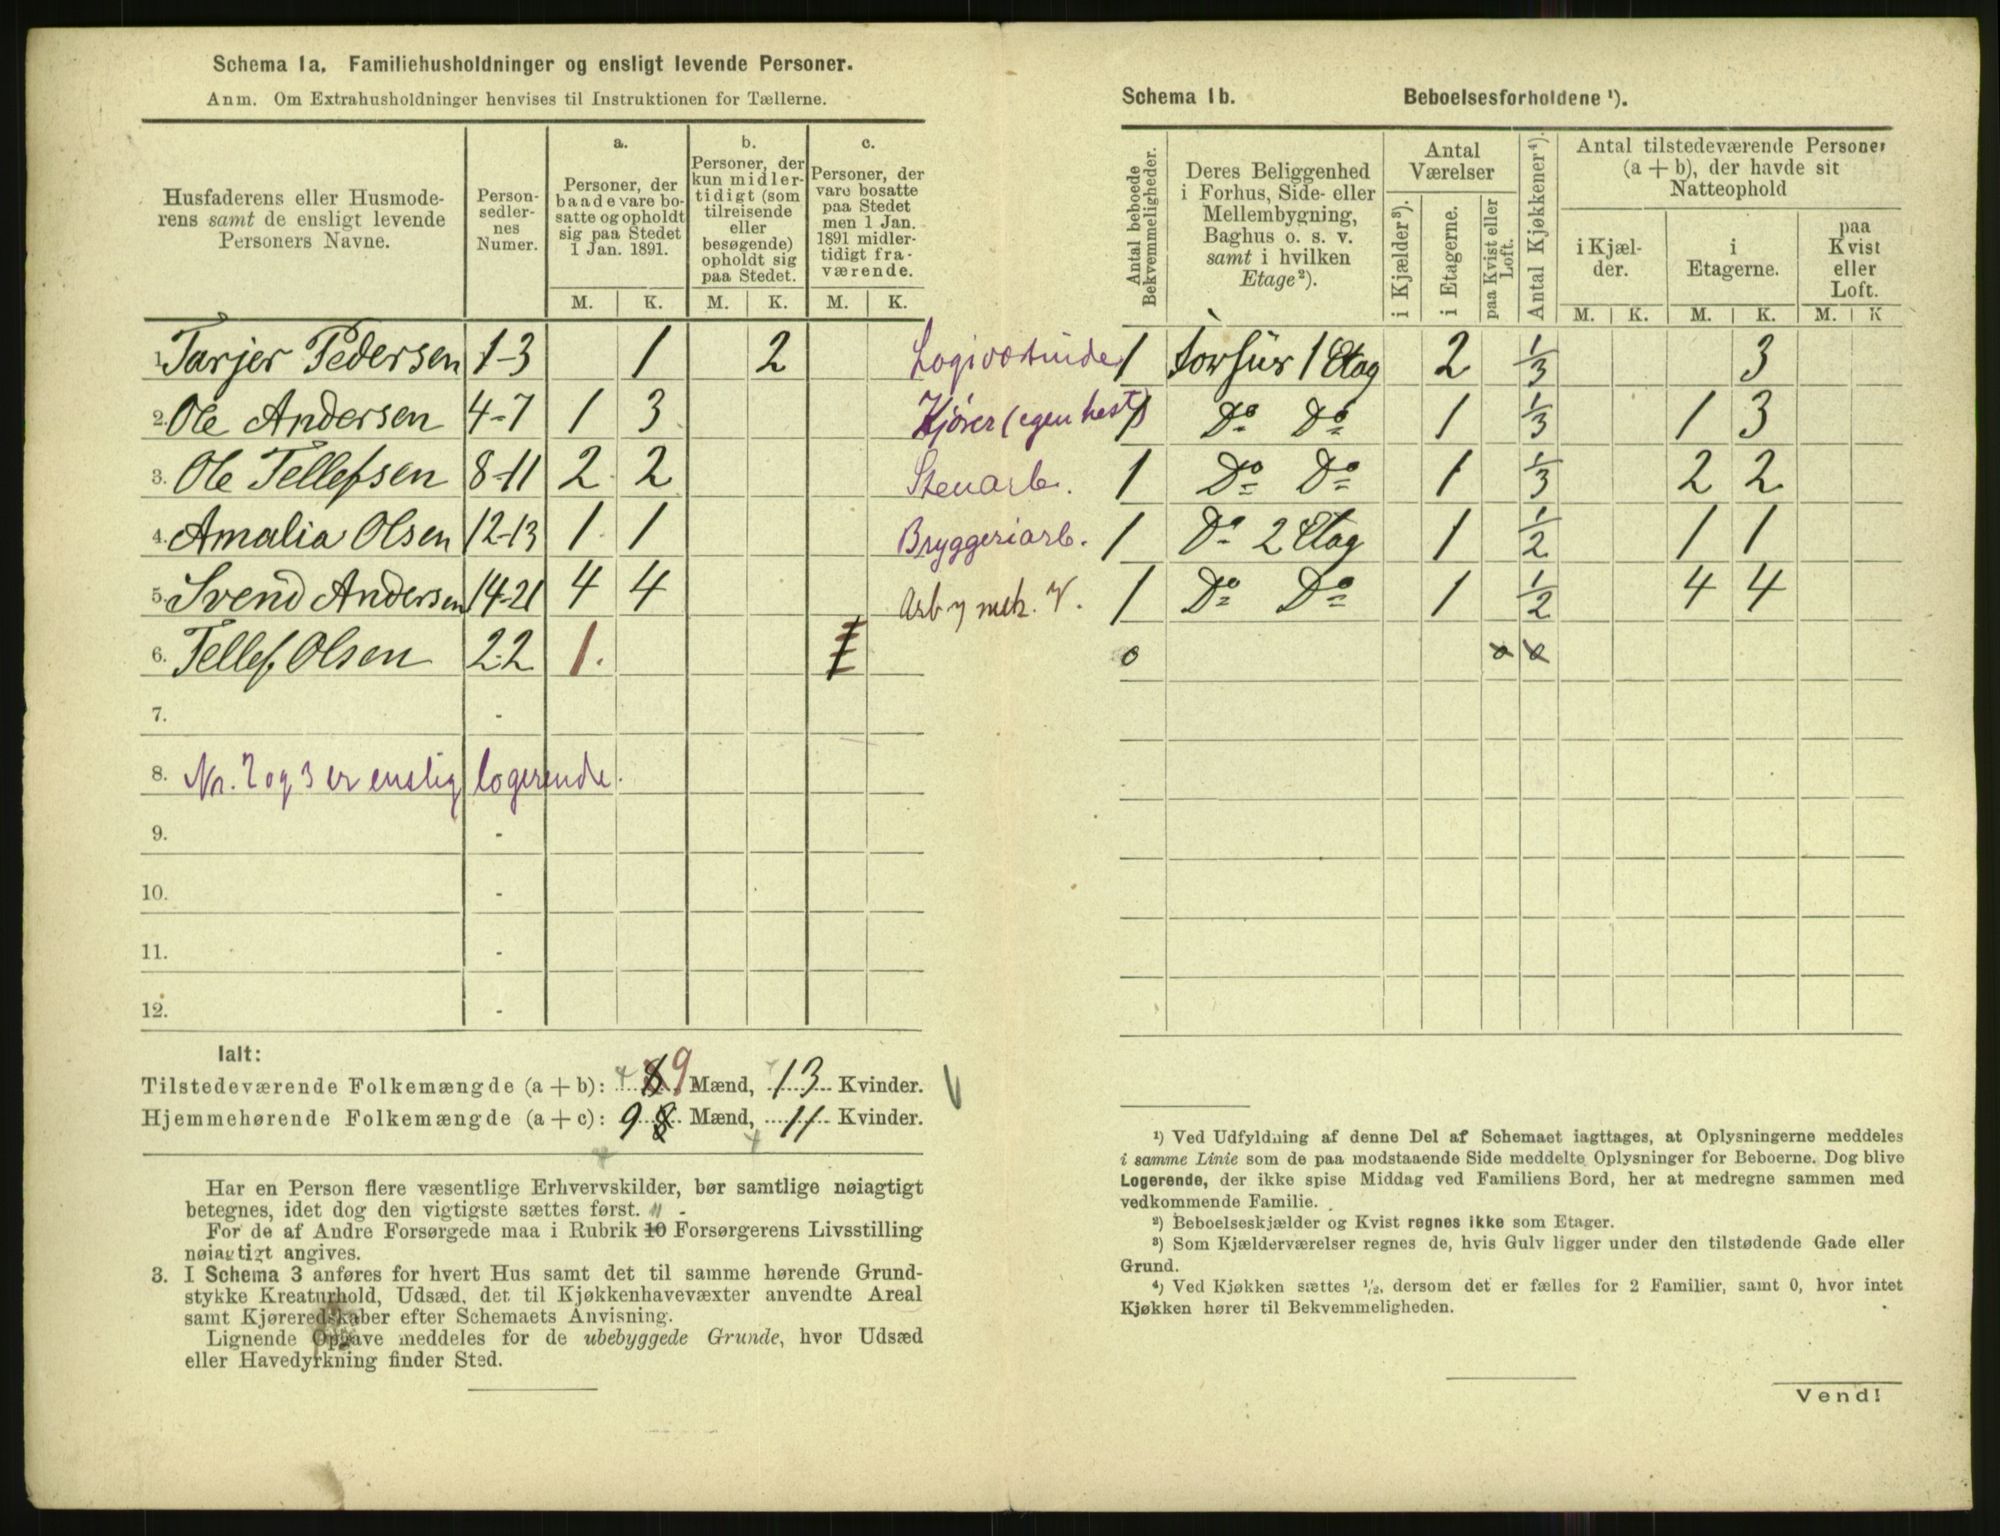 Schema 1a. Familiehusholdninger og ensligt levende Personer.
Anm. Om Extrahusholdninger henvises til Instruktionen for Tællerne.
Husfaderens eller Husmoderens samt de ensligt levende Personers Navne.
Personsedlernes Numer.
a. Personer, der baade vare bosatte og opholdt sig paa Stedet 1 Jan. 1891.
b. Personer, der kun midlertidigt (som tilreisende eller besøgende) opholdt sig paa Stedet.
c. Personer, der vare bosatte paa Stedet men 1 Jan. 1891 midlertidigt fraværende.
M. K. M. K. M. K.
1. Tarjer Pedersen 1-3 1 2 Logivertinde
2. Ole Andersen 4-7 1 3 Kjører (egen hest)
3. Ole Tellefsen 8-11 2 2 Stenarb.
4. Amalia Olsen 12-13 1 1 Bryggeriarb.
5. Svend Andersen 14-21 4 4 Arb mek. V.
6. Tellef Olsen 22 1.
7. -
8. No. 2 og 3 er enslig logerende.
9. -
10. -
11. -
12. -
Ialt:
Tilstedeværende Folkemængde (a + b): 8 9 Mænd, 13 Kvinder.
Hjemmehørende Folkemængde (a + c): 9 8 Mænd, 11 Kvinder.
Har en Person flere væsentlige Erhvervskilder, bør samtlige nøiagtigt
betegnes, idet dog den vigtigste sættes først.
For de af Andre Forsørgede maa i Rubrik 10 Forsørgerens Livsstilling
nøiagtigt angives.
3. I Schema 3 anføres for hvert Hus samt det til samme hørende Grund-
stykke Kreaturhold, Udsæd, det til Kjøkkenhavevæxter anvendte Areal
samt Kjøreredskaber efter Schemaets Anvisning.
Lignende Opgave meddeles for de ubebyggede Grunde, hvor Udsæd
eller Havedyrkning finder Sted.
Schema 1b. Beboelsesforholdene ¹).
Antal beboede Bekvemmeligheder.
Deres Beliggenhed i Forhus, Side- eller Mellembygning, Baghus o. s. v. samt i hvilken Etage²).
Antal Værelser
i Kjælder³).
i Etagerne.
paa Kvist eller Loft.
Antal Kjøkkener⁴).
Antal tilstedeværende Personer (a + b), der havde sit Natteophold
i Kjælder.
i Etagerne.
paa Kvist eller Loft.
M. K. M. K. M. K
1 Forhus 1 Etag 2 1/3 3
1 Do Do 1 1/3 1 3
1 Do Do 1 1/3 2 2
1 Do 2 Etag 1 1/2 1 1
1 Do Do 1 1/2 4 4
0 0 0
¹) Ved Udfyldning af denne Del af Schemaet iagttages, at Oplysningerne meddeles
i samme Linie som de paa modstaaende Side meddelte Oplysninger for Beboerne. Dog blive
Logerende, der ikke spise Middag ved Familiens Bord, her at medregne sammen med
vedkommende Familie.
²) Beboelseskjælder og Kvist regnes ikke som Etager.
³) Som Kjælderværelser regnes de, hvis Gulv ligger under den tilstødende Gade eller
Grund.
⁴) Ved Kjøkken sættes ¹/₂, dersom det er fælles for 2 Familier, samt 0, hvor intet
Kjøkken hører til Bekvemmeligheden.
Vend!